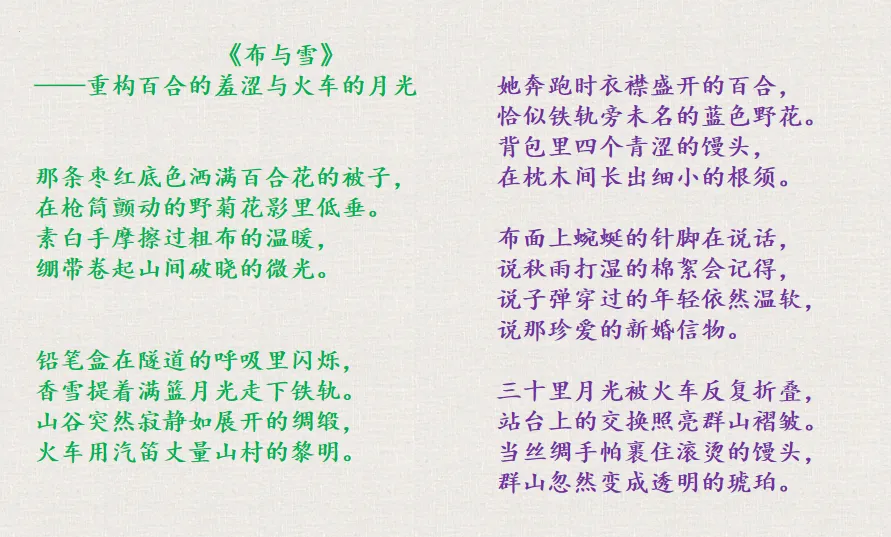 《布与雪》
——重构百合的羞涩与火车的月光
那条枣红底色洒满百合花的被子，
在枪筒颤动的野菊花影里低垂。
素白手摩擦过粗布的温暖，
绷带卷起山间破晓的微光。
铅笔盒在隧道的呼吸里闪烁，
香雪提着满篮月光走下铁轨。
山谷突然寂静如展开的绸缎，
火车用汽笛丈量山村的黎明。
她奔跑时衣襟盛开的百合，
恰似铁轨旁未名的蓝色野花。
背包里四个青涩的馒头，
在枕木间长出细小的根须。
布面上蜿蜒的针脚在说话，
说秋雨打湿的棉絮会记得，
说子弹穿过的年轻依然温软，
说那珍爱的新婚信物。
三十里月光被火车反复折叠，
站台上的交换照亮群山褶皱。
当丝绸手帕裹住滚烫的馒头，
群山忽然变成透明的琥珀。